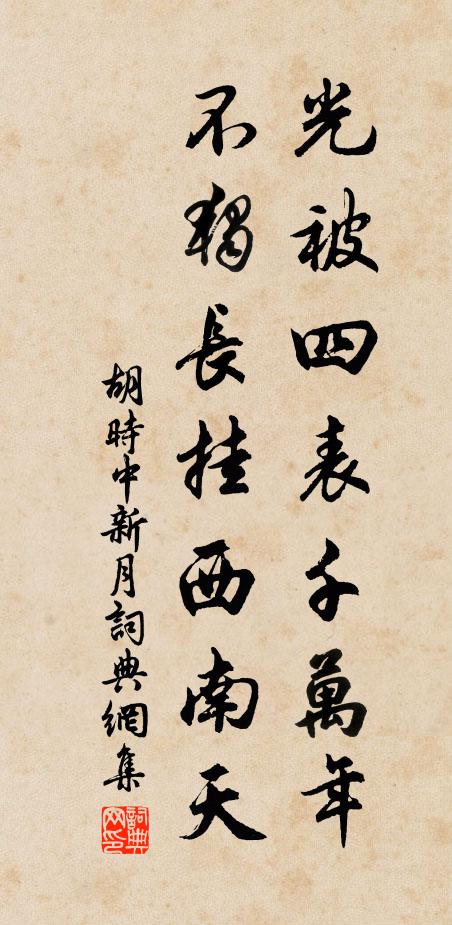 光被四表千萬年
不獨長挂西南天
胡時中新月詞典網集
詞典网印